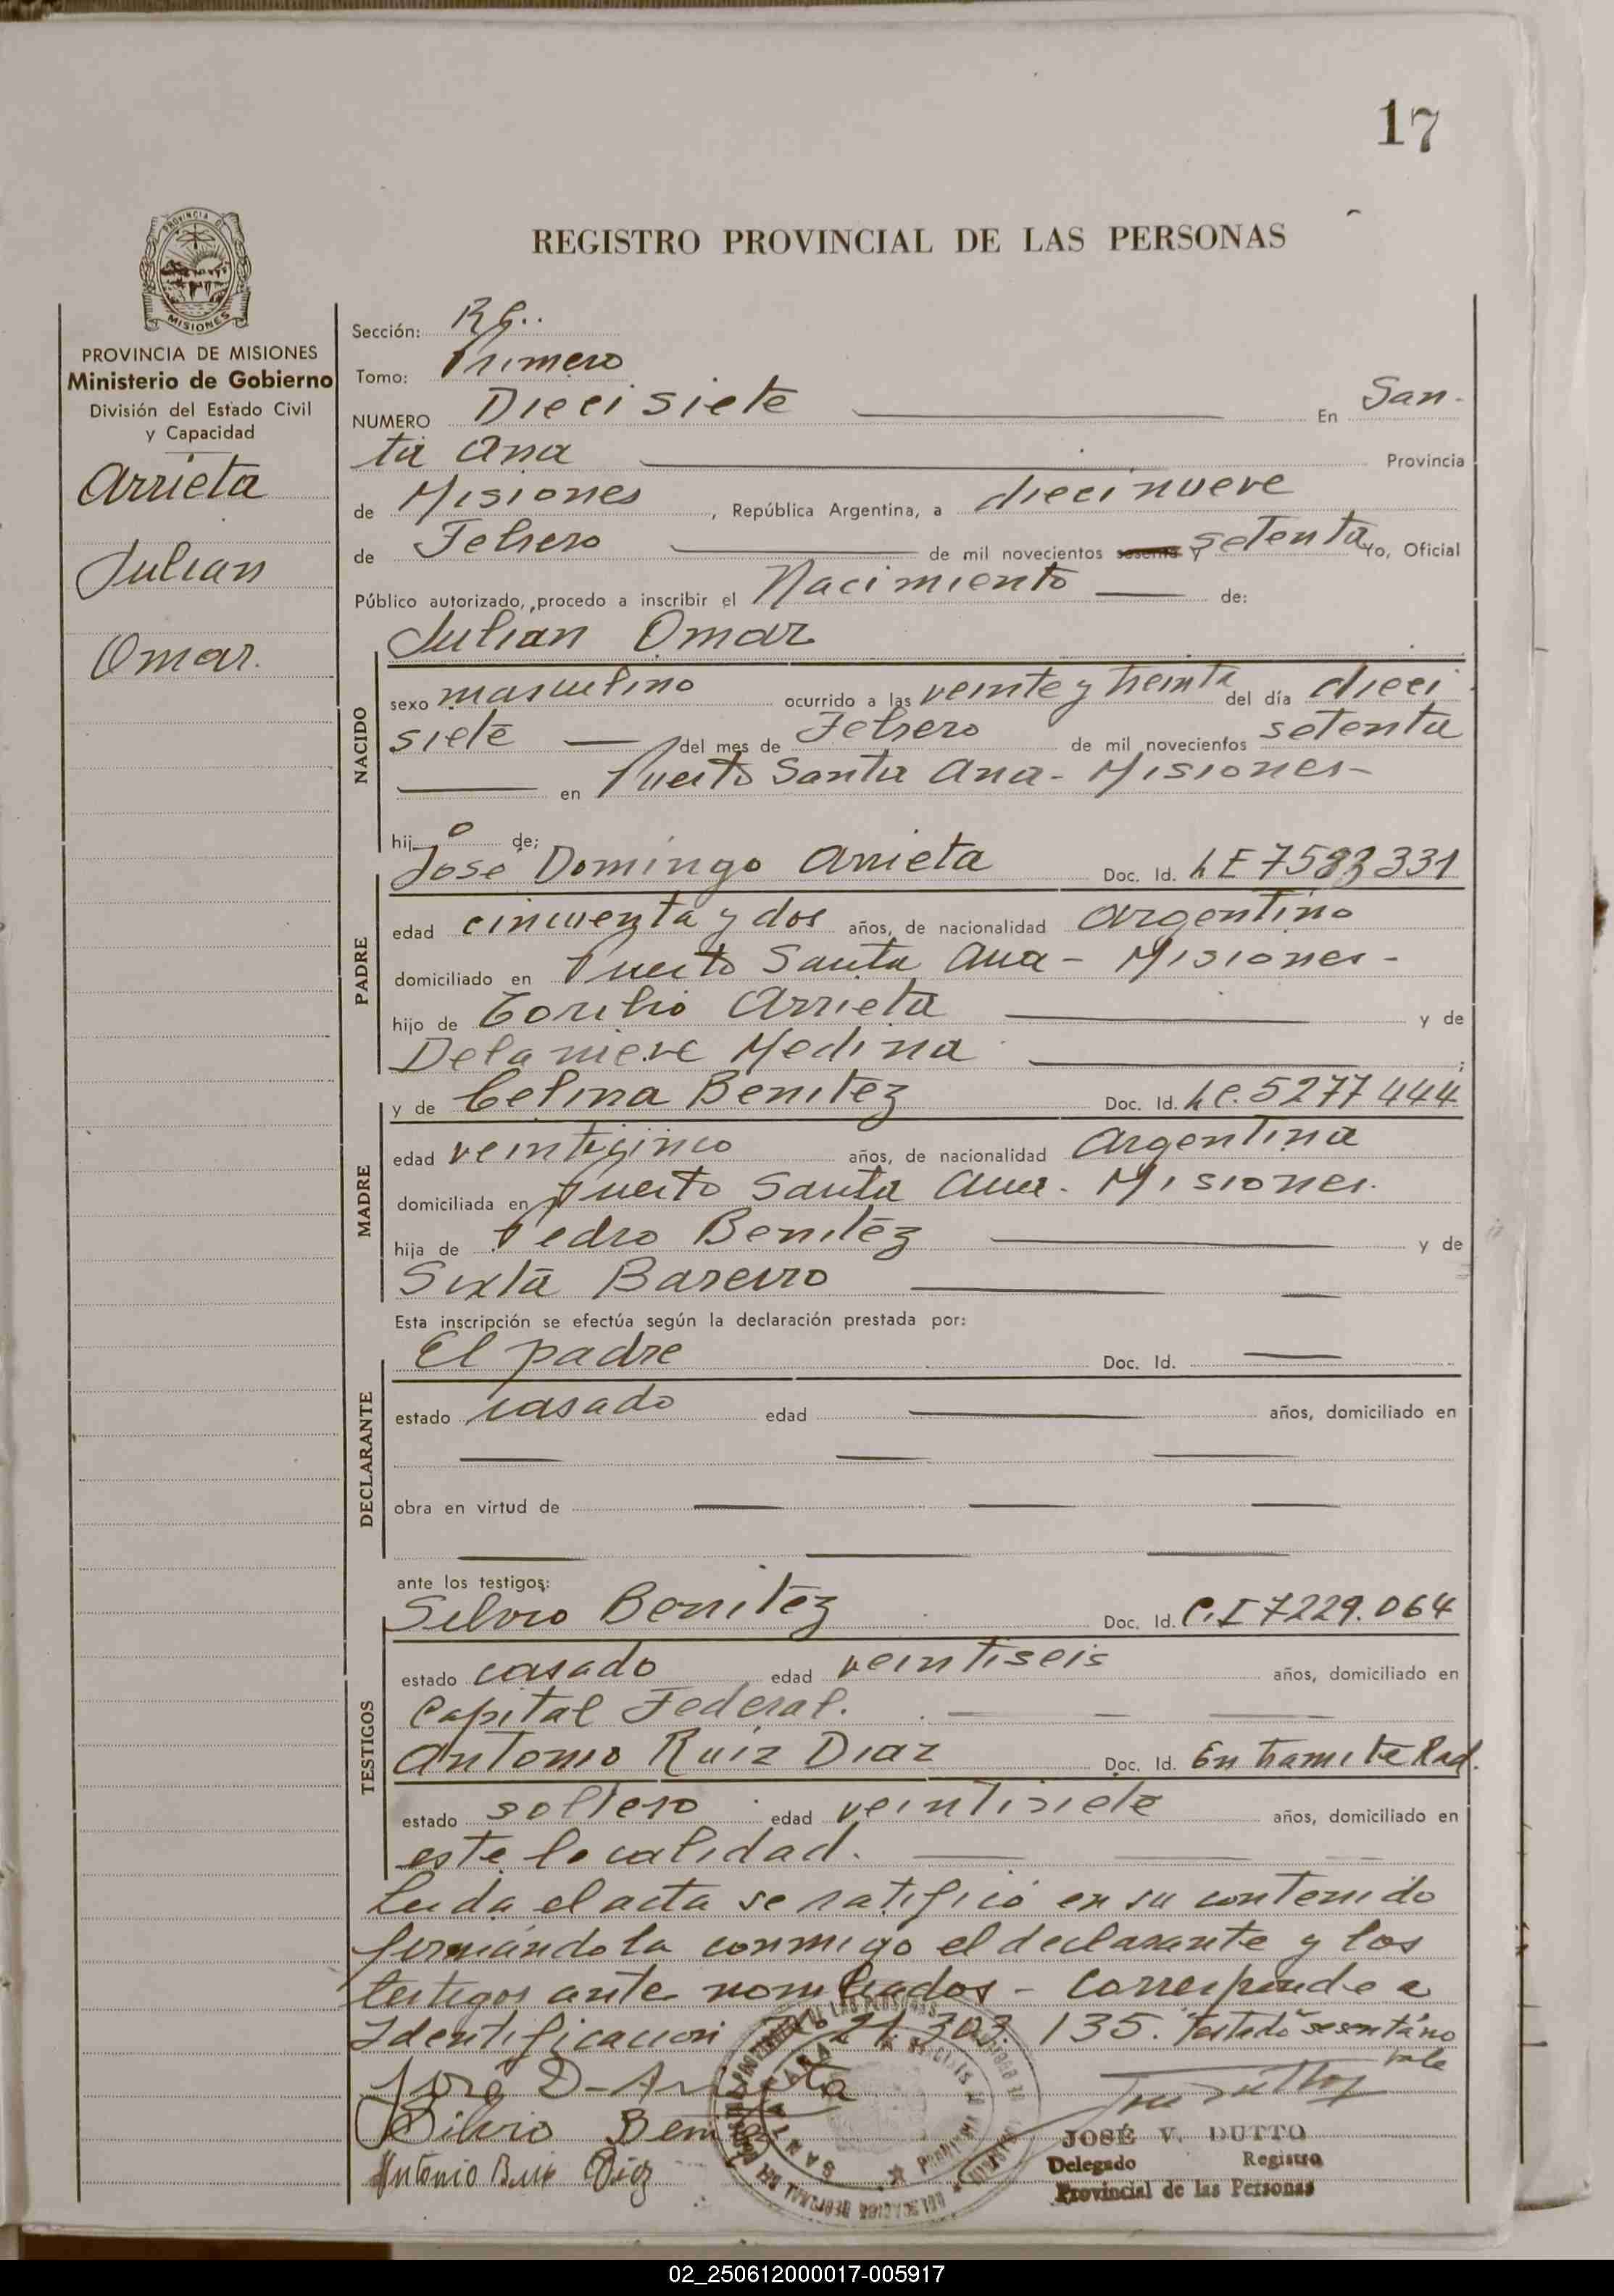 17
REGISTRO PROVINCIAL DE LAS PERSONAS
PROVINCIA DE MISIONES
Ministerio de Gobierno
División del Estado Civil
y Capacidad
Arrieta
Julian
Omar.
Sección: RG..
Tomo: Primero
NUMERO Dieci siete En San-
ta Ana Provincia
de Misiones, República Argentina, a diecinueve
de Febrero de mil novecientos sesenta y setenta Yo, Oficial
Público autorizado, procedo a inscribir el Nacimiento de:
Julian Omar
NACIDO
sexo masculino ocurrido a las veinte y treinta del día dieci
siete del mes de Febrero de mil novecientos setenta
en Puerto Santa Ana - Misiones-
hij o de;
PADRE
José Domingo Arrieta Doc. Id. LE 7583331
edad cincuenta y dos años, de nacionalidad Argentino
domiciliado en Puerto Santa Ana - Misiones -
hijo de Toribio Arrieta y de
Delanieve Medina ;
MADRE
y de Celina Benitez Doc. Id. LC. 5277444
edad veinticinco años, de nacionalidad Argentina
domiciliada en Puerto Santa Ana - Misiones.
hija de Pedro Benitez y de
Sixta Bareiro
Esta inscripción se efectúa según la declaración prestada por:
DECLARANTE
El padre Doc. Id.
estado casado edad años, domiciliado en
obra en virtud de
ante los testigos:
TESTIGOS
Silvio Benitez Doc. Id. C.I 7229.064
estado casado edad veintiseis años, domiciliado en
Capital Federal.
Antonio Ruiz Diaz Doc. Id. En tramite Rad.
estado soltero edad veintisiete años, domiciliado en
este localidad.
Leida el acta se ratificó en su contenido
firmándola conmigo el declarante y los
testigos ante nombrados - Corresponde a
Identificacion No 21.302.135. Testado "sesenta" no
vale
José D- Arrieta
Silvio Benitez
Antonio Ruiz Diaz
SANTA ANA
JOSÉ V. DUTTO
Delegado Registro
Provincial de las Personas
02_250612000017-005917